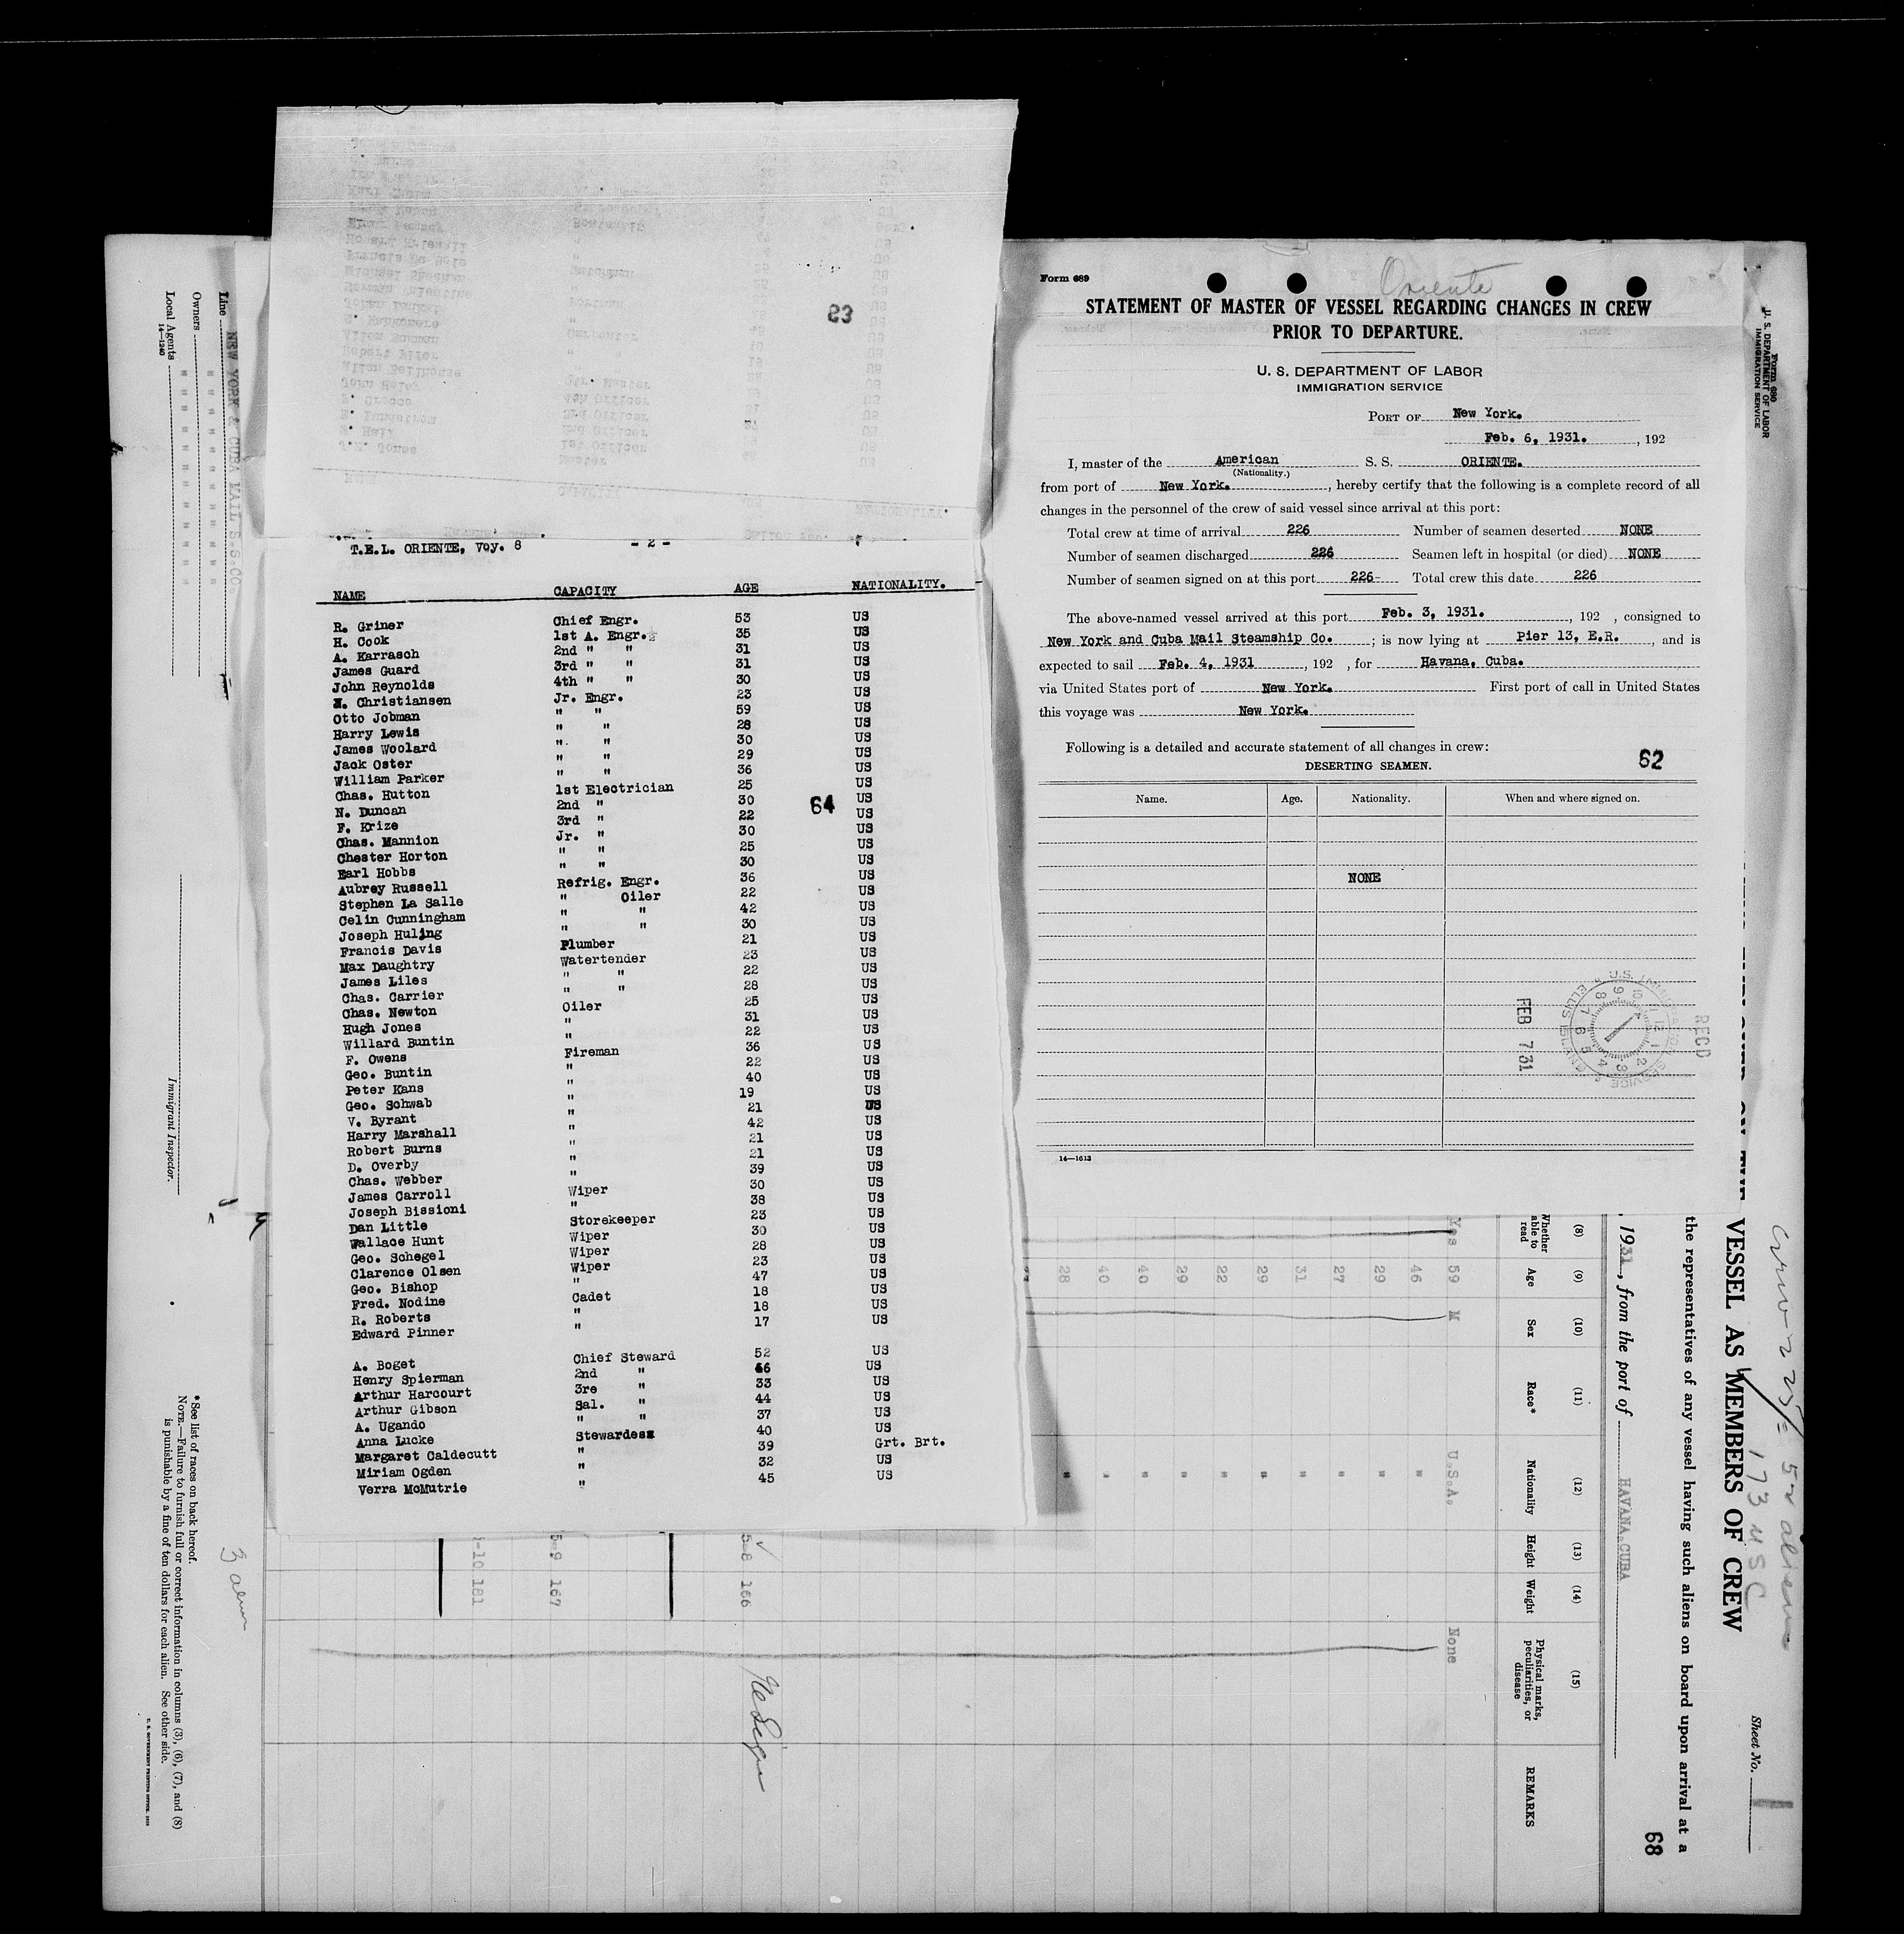 83
T.E.L. ORIENTE, Voy. 8 - 2 -
NAME CAPACITY AGE NATIONALITY.
R. Griner Chief Engr. 53 US
H. Cook 1st A. Engr. 35 US
A. Karrasch 2nd " " 31 US
James Guard 3rd " " 31 US
John Reynolds 4th " " 30 US
N. Christiansen Jr. Engr. 23 US
Otto Jobman " " 59 US
Harry Lewis " " 28 US
James Woolard " " 30 US
Jack Oster " " 29 US
William Parker " " 36 US
Chas. Hutton 1st Electrician 25 US
N. Duncan 2nd " 30 US
64
F. Krize 3rd " 22 US
Chas. Mannion Jr. " 30 US
Chester Horton " " 25 US
Earl Hobbs " " 30 US
Aubrey Russell Refrig. Engr. 36 US
Stephen La Salle " Oiler 22 US
Celin Cunningham " " 42 US
Joseph Huling " " 30 US
Francis Davis Plumber 21 US
Max Daughtry Watertender 23 US
James Liles " " 22 US
Chas. Carrier " " 28 US
Chas. Newton Oiler 25 US
Hugh Jones " 31 US
Willard Buntin " 22 US
F. Owens Fireman 36 US
Geo. Buntin " 22 US
Peter Kans " 40 US
Geo. Schwab " 19 US
V. Byrant " 21 US
Harry Marshall " 42 US
Robert Burns " 21 US
D. Overby " 21 US
Chas. Webber " 39 US
James Carroll Wiper 30 US
Joseph Bissioni " 38 US
Dan Little Storekeeper 23 US
Wallace Hunt Wiper 30 US
Geo. Schegel Wiper 28 US
Clarence Olsen Wiper 23 US
Geo. Bishop " 47 US
Fred. Nodine Cadet 18 US
R. Roberts " 18 US
Edward Pinner " 17 US
A. Boget Chief Steward 52 US
Henry Spierman 2nd " 46 US
Arthur Harcourt 3re " 33 US
Arthur Gibson Sal. " 44 US
A. Ugando " " 37 US
Anna Lucke Stewardess 40 US
Margaret Caldecutt " 39 Grt. Brt.
Miriam Ogden " 32 US
Verra McMutrie " 45 US
Form 689
Oriente
STATEMENT OF MASTER OF VESSEL REGARDING CHANGES IN CREW
PRIOR TO DEPARTURE.
U. S. DEPARTMENT OF LABOR
IMMIGRATION SERVICE
PORT OF New York.
Feb. 6, 1931. , 192
I, master of the American S. S. ORIENTE.
(Nationality.)
from port of New York. , hereby certify that the following is a complete record of all
changes in the personnel of the crew of said vessel since arrival at this port:
Total crew at time of arrival 226 Number of seamen deserted NONE
Number of seamen discharged 226 Seamen left in hospital (or died) NONE
Number of seamen signed on at this port 226- Total crew this date 226
The above-named vessel arrived at this port Feb. 3, 1931. , 192 , consigned to
New York and Cuba Mail Steamship Co. ; is now lying at Pier 13, E.R. , and is
expected to sail Feb. 4, 1931 , 192 , for Havana, Cuba.
via United States port of New York. First port of call in United States
this voyage was New York.
Following is a detailed and accurate statement of all changes in crew:
DESERTING SEAMEN.
62
Name. Age. Nationality. When and where signed on.
NONE
RECD
U.S. IMMIGRATION SERVICE
ELLIS ISLAND
FEB 7 31
14—1613
Form 680
U. S. DEPARTMENT OF LABOR
IMMIGRATION SERVICE
Sheet No. 1
crew 225/= 52 aliens
173 USC
VESSEL AS MEMBERS OF CREW
the representatives of any vessel having such aliens on board upon arrival at a
1931, from the port of HAVANA CUBA
68
(8) (9) (10) (11) (12) (13) (14) (15)
Whether able to read
Age
Sex
Race*
Nationality
Height
Weight
Physical marks, peculiarities, or disease
REMARKS
Yes 59 M U.S.A. None
46 "
29 "
27 "
31 "
29 "
22 "
29 "
40 "
40 "
28 "
5-8 166
5-9 167
-10 181
Line NEW YORK & CUBA MAIL S.S.CO.
Owners " " " " " " "
Local Agents " " " " " " "
14—1240
Immigrant Inspector.
*See list of races on back hereof.
NOTE.—Failure to furnish full or correct information in columns (3), (6), (7), and (8)
is punishable by a fine of ten dollars for each alien. See other side.
U. S. GOVERNMENT PRINTING OFFICE